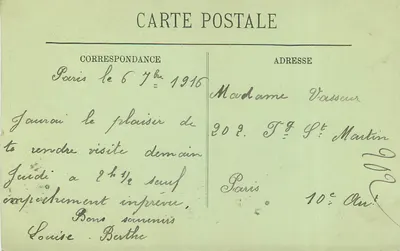 CARTE POSTALE
CORRESPONDANCE
Paris le 6 7bre 1916
Jaurai le plaiser de
te rendre visite demain
Jeudi a 2h 1/2 sauf
empechement imprévu.
Bons souvenirs
Louise-Berthe
ADRESSE
Madame Vasseur
202. Fg St Martin
Paris
10e Arr.
202